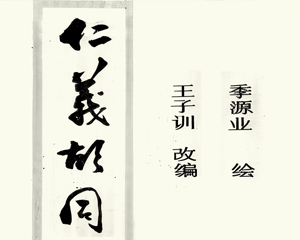 仁義胡同
季源业 绘
王子训 改编